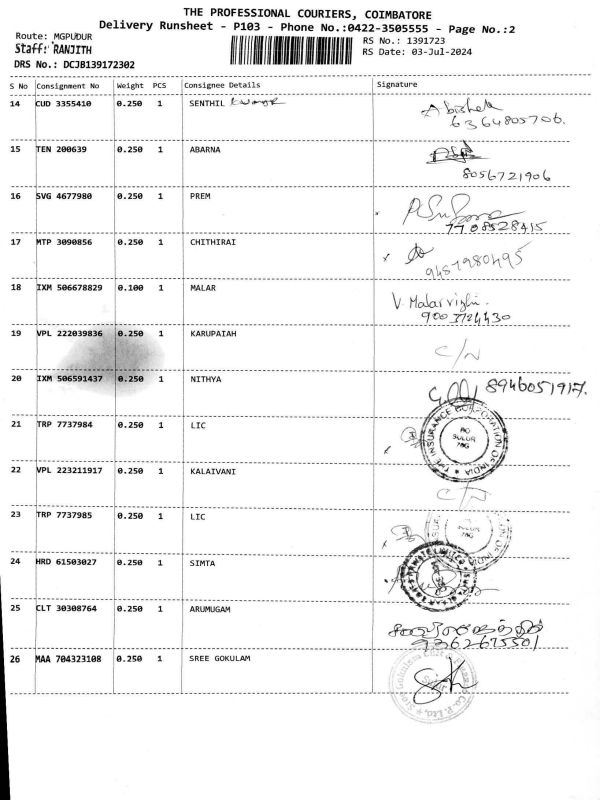 THE PROFESSIONAL COURIERS, COIMBATORE
Delivery Runsheet - P103 - Phone No.:0422-3505555 - Page No.:2
Route: MGPUDUR
RS No.: 1391723
Staff: RANJITH
RS Date: 03-Jul-2024
DRS No.: DCJB139172302
S No Consignment No Weight PCS Consignee Details Signature
14 CUD 3355410 0.250 1 SENTHIL Kumar Abishek
6364805706.
15 TEN 200639 0.250 1 ABARNA
8056721906
16 SVG 4677980 0.250 1 PREM
7708528415
17 MTP 3090856 0.250 1 CHITHIRAI
9487980495
18 IXM 506678829 0.100 1 MALAR V. Malarvizhi.
19 VPL 222039836 0.250 1 KARUPAIAH C/N
20 IXM 506591437 0.250 1 NITHYA 8946051917.
21 TRP 7737984 0.250 1 LIC
SULUR
22 VPL 223211917 0.250 1 KALAIVANI C/N
23 TRP 7737985 0.250 1 LIC
24 HRD 61503027 0.250 1 SIMTA
25 CLT 30308764 0.250 1 ARUMUGAM
9362675501
26 MAA 704323108 0.250 1 SREE GOKULAM
Sulur